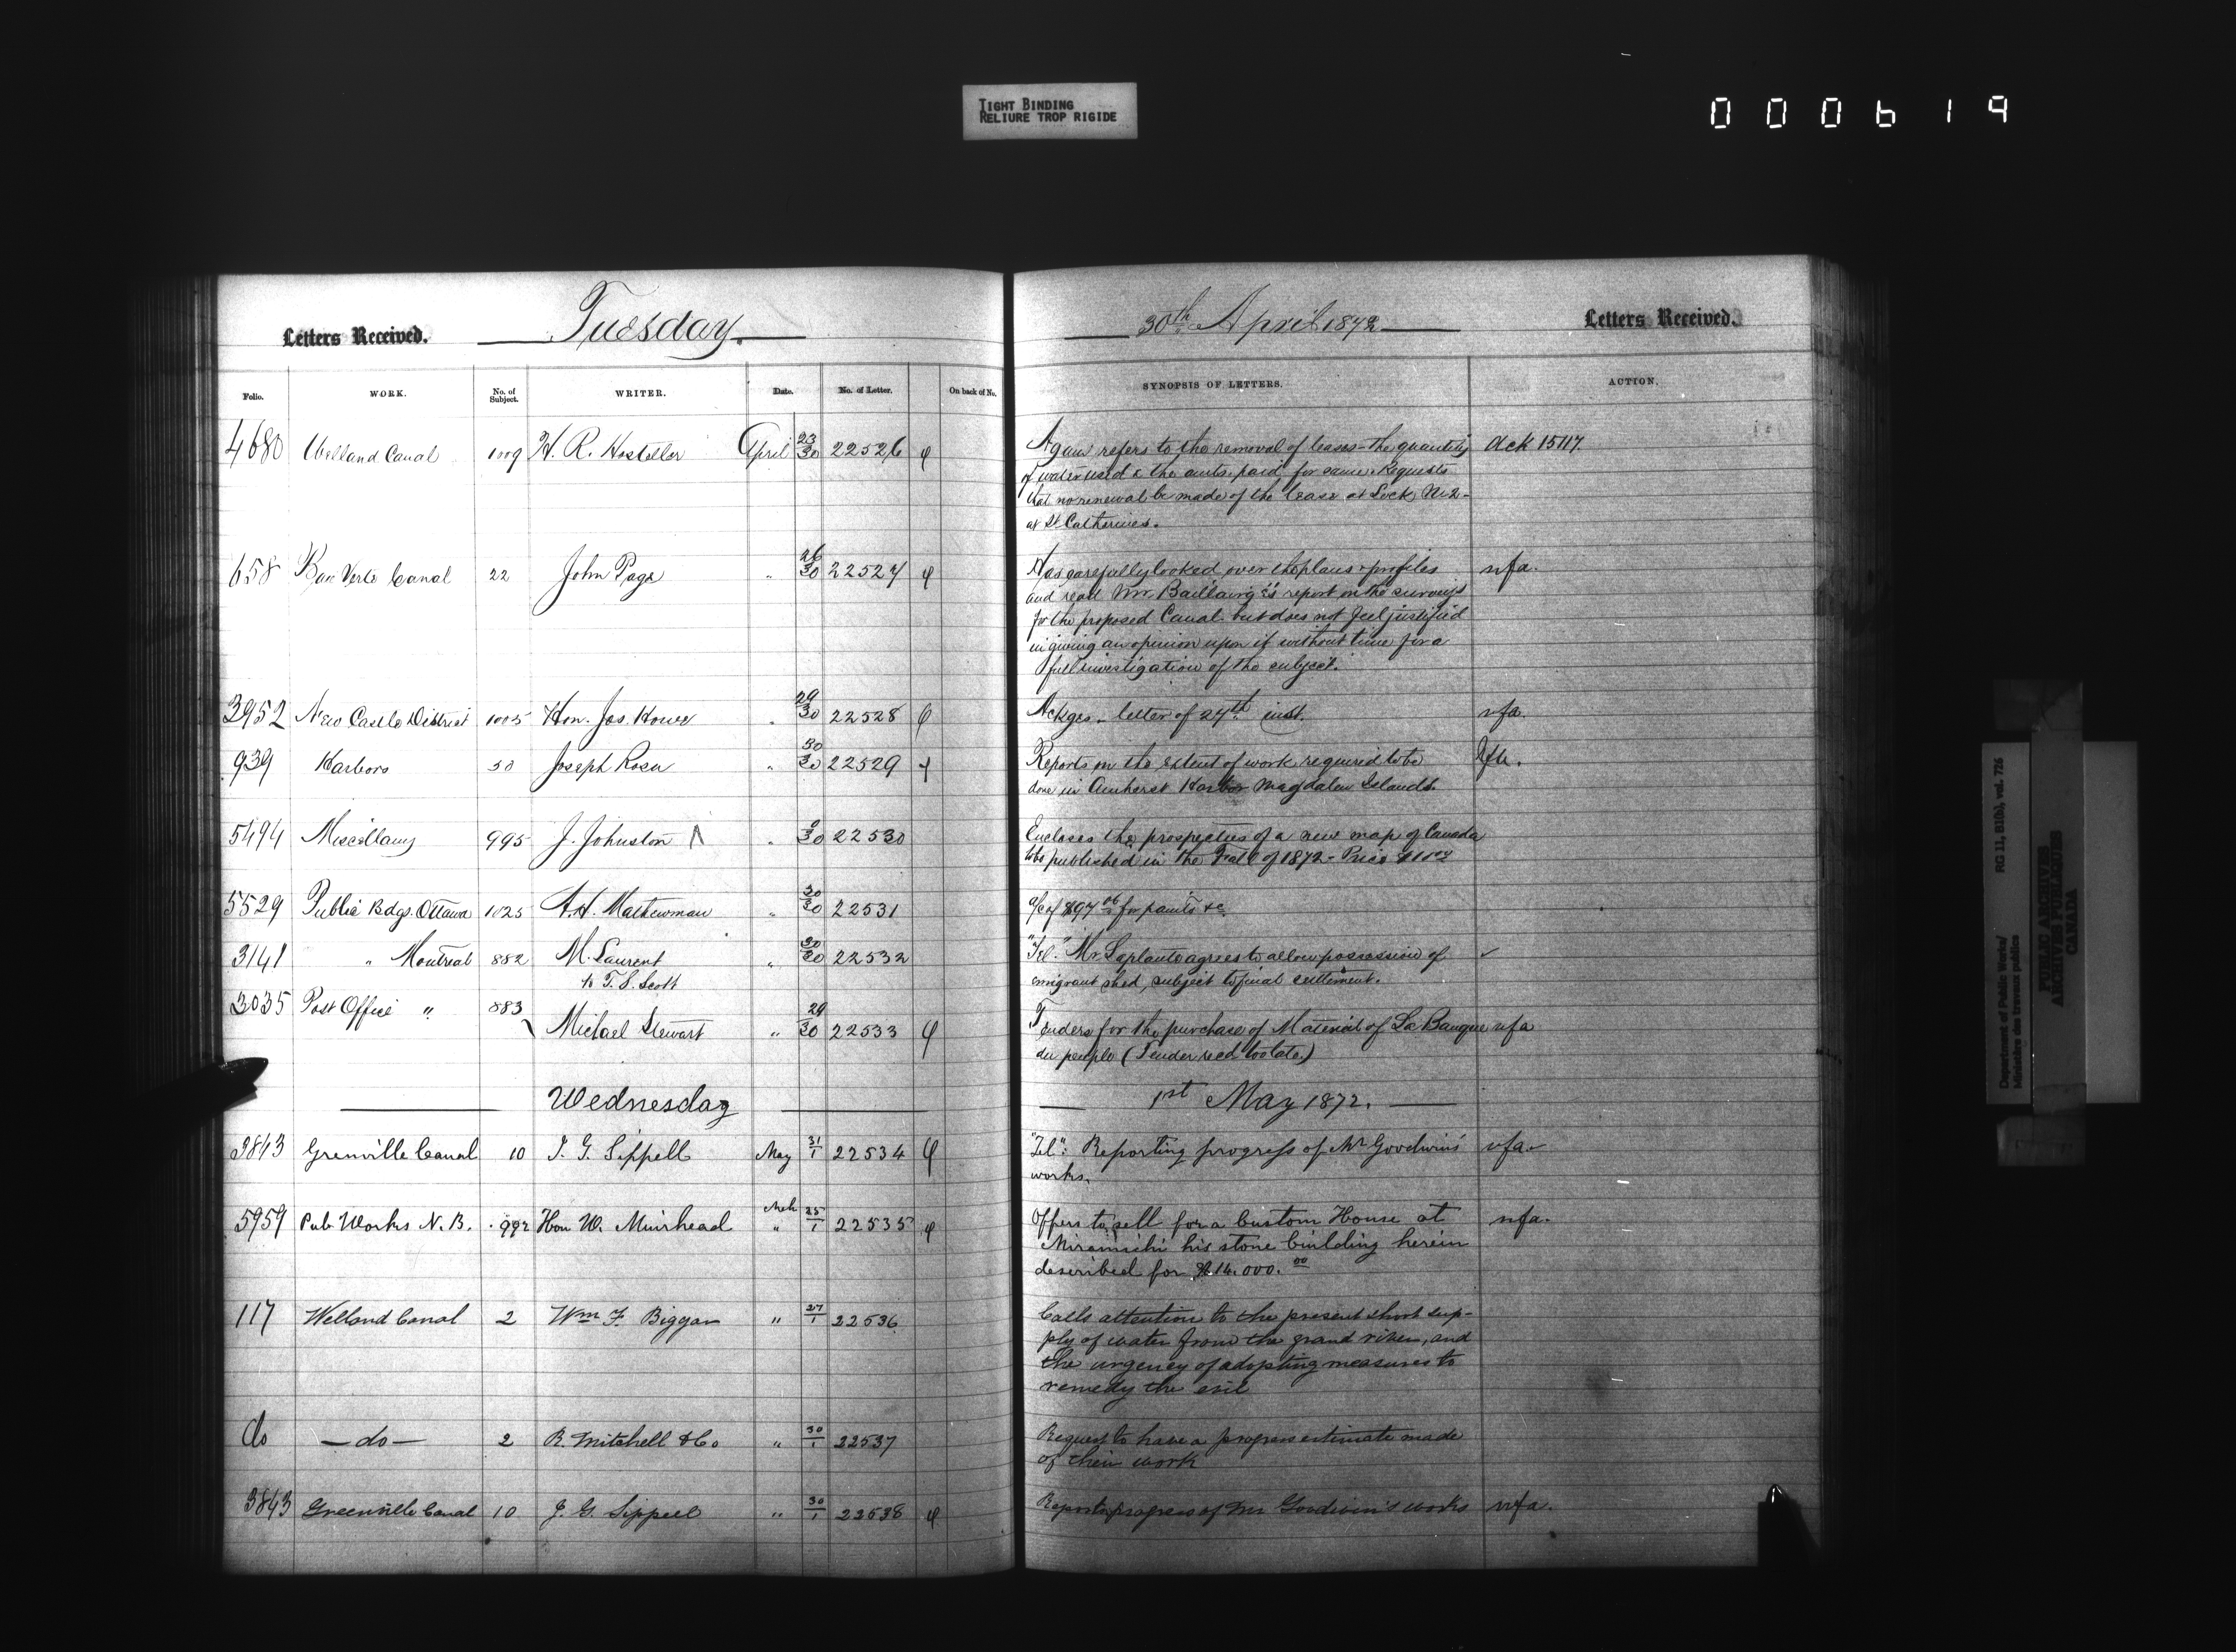 TIGHT BINDING
RELIURE TROP RIGIDE
000619
Letters Received. Tuesday. 30th April 1872 Letters Received.
Folio. WORK. No. of Subject. WRITER. Date. No. of Letter. On back of No. SYNOPSIS OF LETTERS. ACTION.
4680 Welland Canal 1009 H. R. Hosteller April 23/30 22526 Again refers to the removal of leases - the quantity ack 15117.
of water used & the amts. paid for same. Requests
that no renewal be made of the lease at Lock No 2 -
at St Catherines.
658 Baie Verte Canal 22 John Page " 26/30 22527 Has carefully looked over the plans & profiles nfa.
and read Mr Baillairgé's report on the surveys
for the proposed Canal. but does not feel justified
in giving an opinion upon it without time for a
full investigation of the subject.
3952 New Castle District 1005 Hon. Jos. Howe " 29/30 22528 Ackges. letter of 24th inst. nfa.
939 Harbors 50 Joseph Rosa " 30/30 22529 Reports on the extent of work required to be nfa.
done in Amherst Harbor Magdalen Islands.
5494 Miscellany 995 J. Johnston " 9/30 22530 Encloses the prospectus of a new map of Canada
to be published in the Fall of 1872 - Price
5529 Public Bdgs. Ottawa 1025 A.H. Mathewman " 30/30 22531 a/c of $97 06 for paints &c.
3141 " Montreal 882 M. Laurent " 30/30 22532 "Tel." Mr Laplante agrees to allow possession of ✓
to T. S. Scott emigrant shed, subject to final settlement.
3035 Post Office " 883 Michael Stewart " 29/30 22533 Tenders for the purchase of Material of La Banque nfa
du peuple (Tender recd too late.)
Wednesday 1st May 1872.
3843 Grenville Canal 10 J. G. Sippell May 31/1 22534 "Tel": Reporting progress of Mr Goodwin's nfa.
works.
5959 Pub Works N. B. 992 Hon W. Muirhead Mch " 25/1 22535 Offers to sell for a Custom House at nfa.
Miramichi his stone building herein
described for $14.000. 00
117 Welland Canal 2 Wm F. Biggar " 27/1 22536 Calls attention to the present short sup-
ply of water from the grand river, and
the urgency of adopting measures to
remedy the evil
do — do — 2 R. Mitchell & Co " 30/1 22537 Request to have a progress estimate made
of their work
3843 Greenville Canal 10 J. G. Sippell " 30/1 22538 Reports progress of Mr Goodwin's works nfa.
Department of Public Works/ RG 11, B1(b), vol. 726
Ministère des travaux publics
PUBLIC ARCHIVES
ARCHIVES PUBLIQUES
CANADA